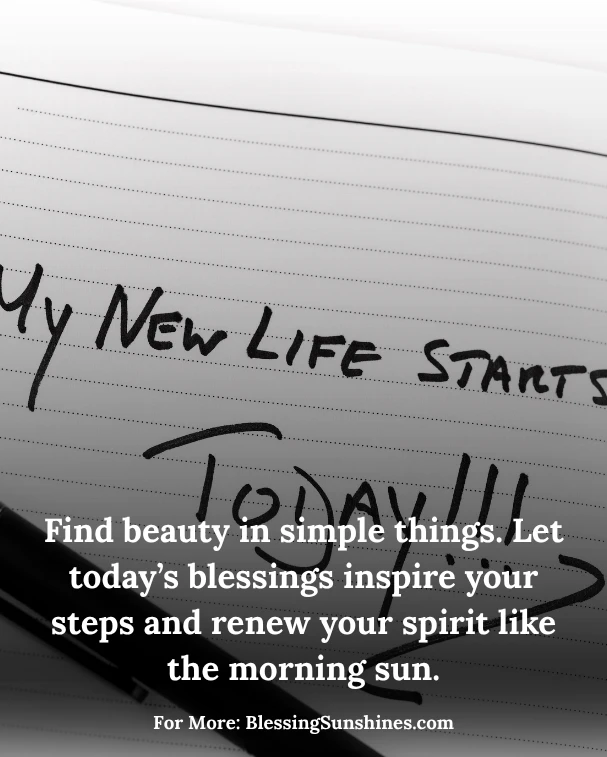 My NEW LIFE STARTS
TODAY!!!
Find beauty in simple things. Let
today’s blessings inspire your
steps and renew your spirit like
the morning sun.
For More: BlessingSunshines.com